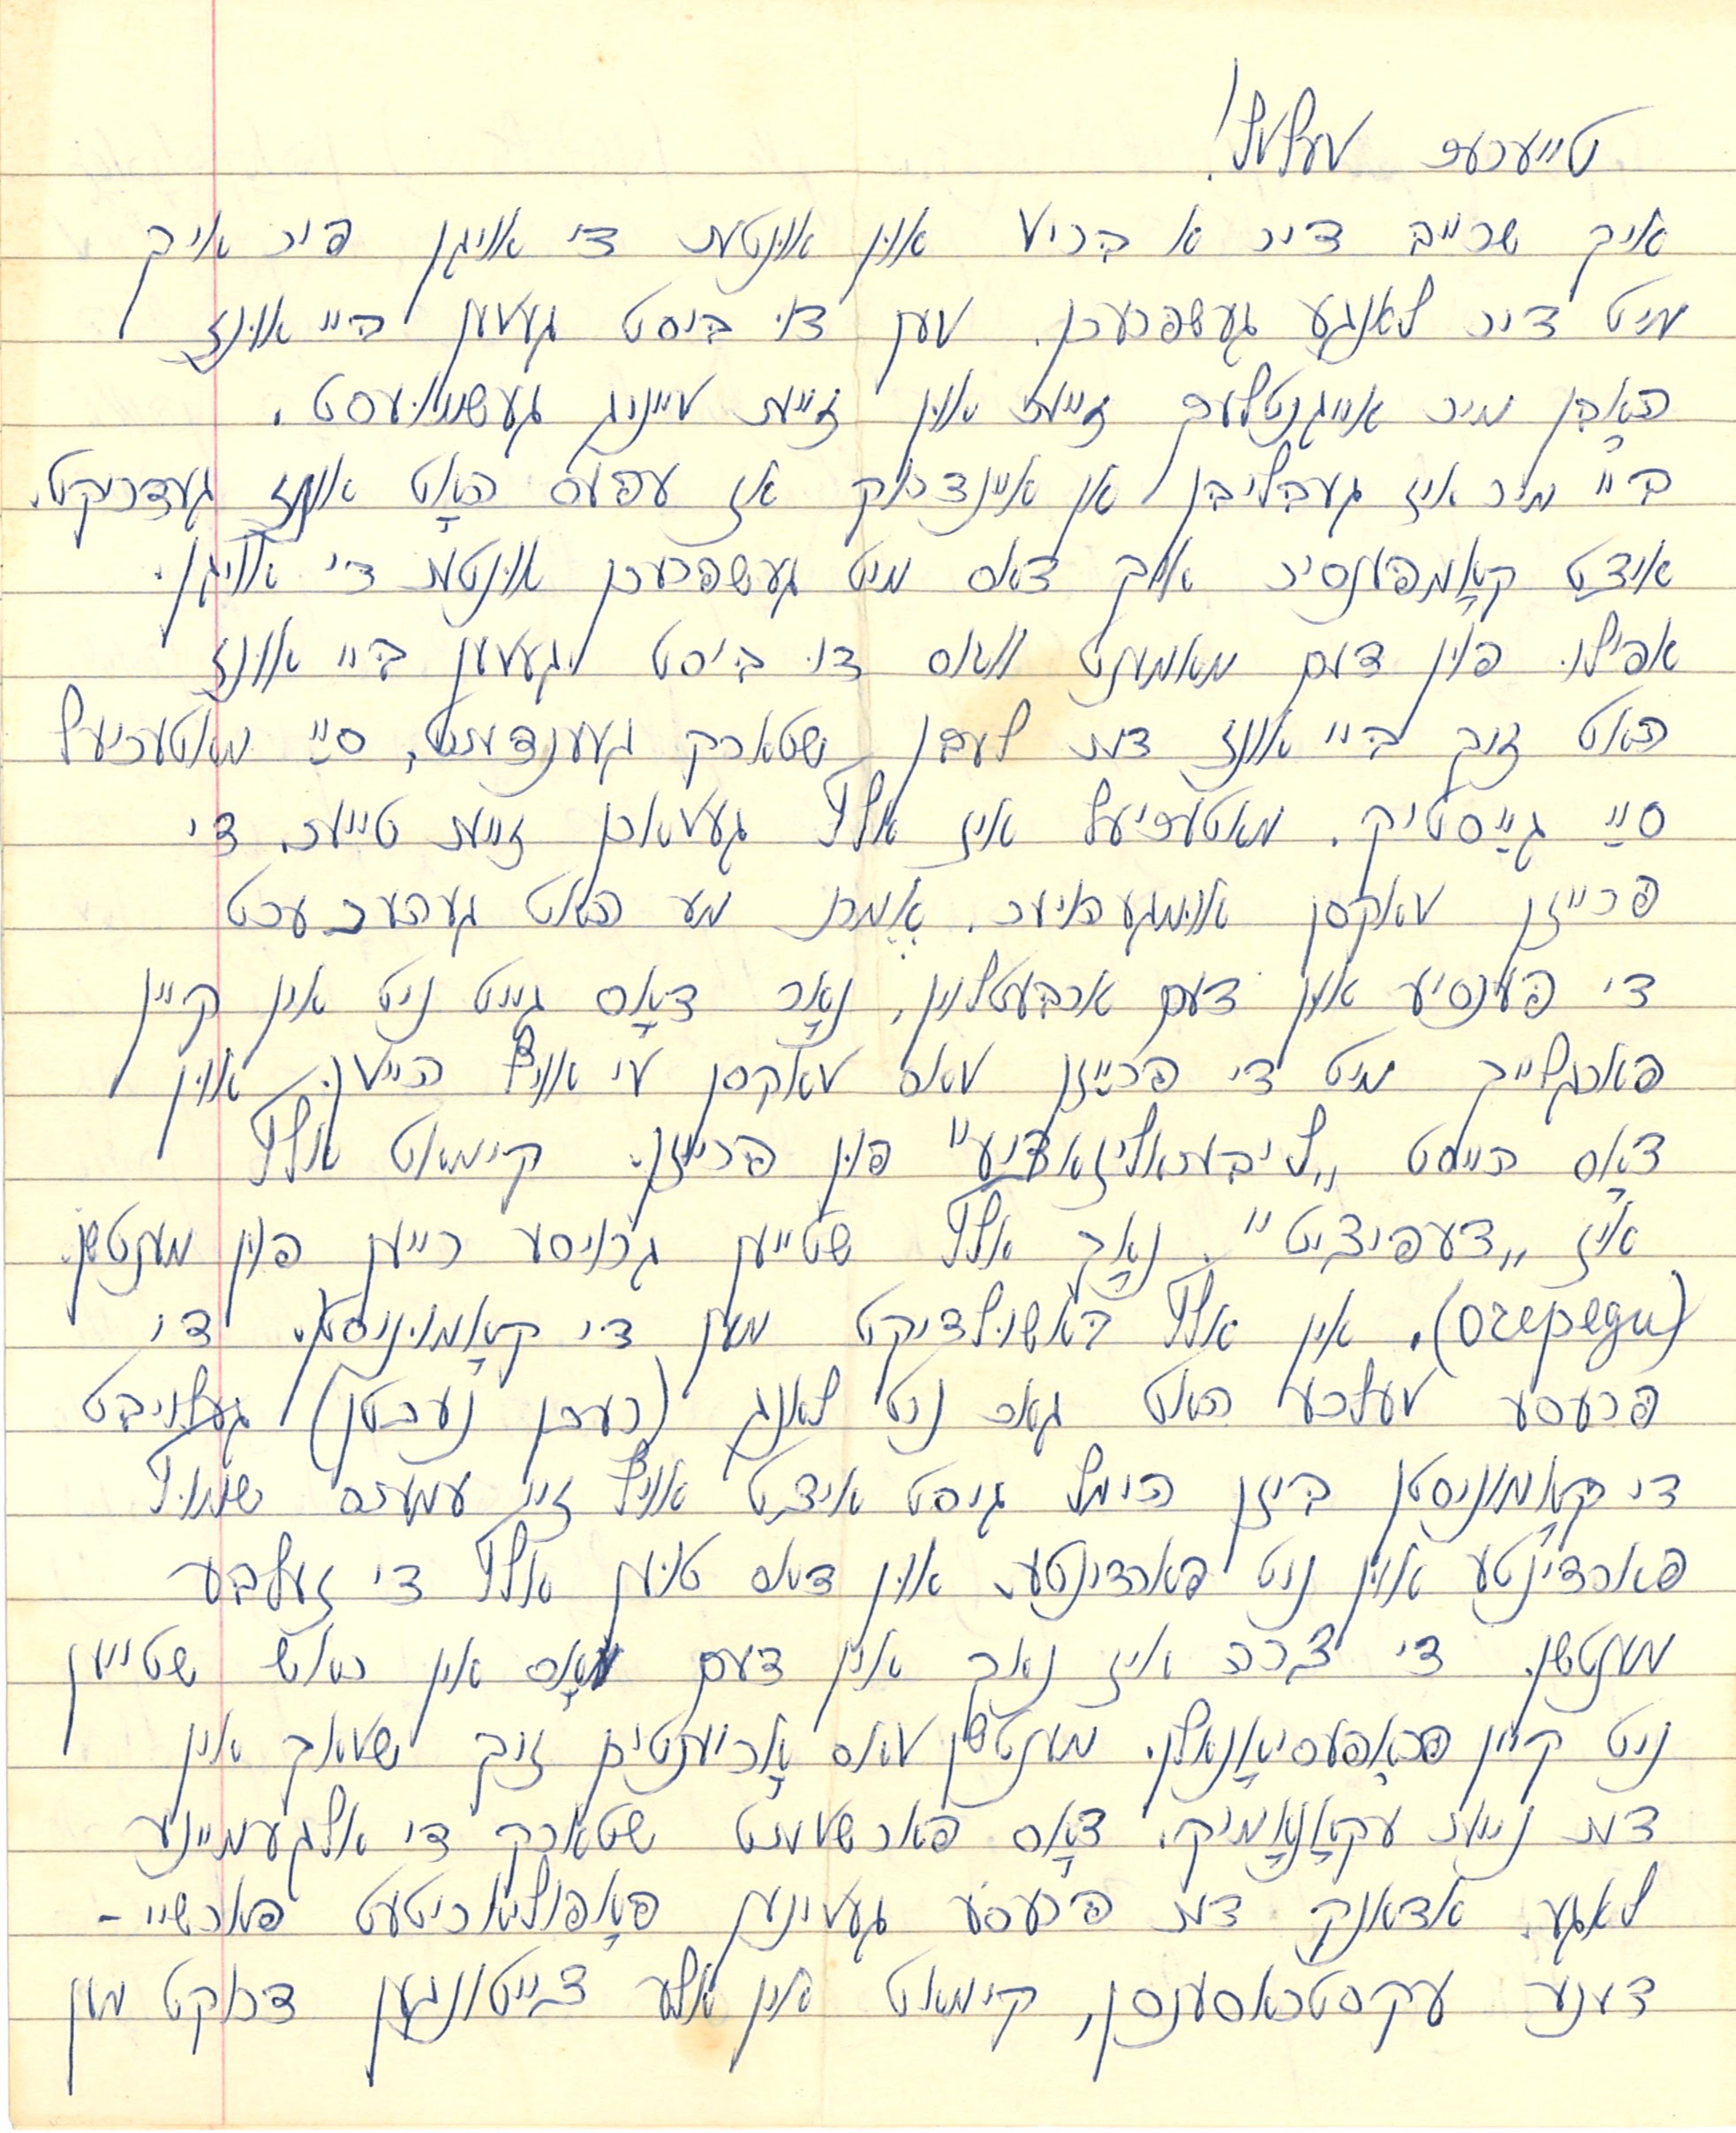 טייערער וועלוול!
איך שרייב דיר א בריוו און אונטער די אויגן פיר איך
מיט דיר לאנגע געשפרעכן. ווען דו ביסט געווען ביי אונז
האָבן מיר אייגנטלעך זייער און זייער וויינוג געשמועסט.
ביי מיר איז געבליבן אן איינדרוק אז עפעס האָט אונז געדריקט.
איצט קאָמפענסיר איך דאס מיט געשפרעכן אונטער די אויגן.
אפילו פון דעם מאמענט וואס דו ביסט געווען ביי אונז
האט זיך ביי אונז דער לעבן שטארק געענדערט, סײַ מאטעריעל
סײַ גײַסטיק. מאטעריעל איז אלץ געווארן זייער טייער. די
פרייזן וואקסן אומגעהויער. אֶמת מע האט געהעכערט
די פענסיע און דעם ארבעטלוין, נאָר דאָס גייט ניט אין קיין
פארגלייך מיט די פרייזן וואס וואקסן ווי אויף הייוון. און
דאָס הייסט „ליבעראליזאציע" פון פרייזן. קימאט אלץ
איז „דעפיציט". נאָך אלץ שטייען גרויסע רייען פון מענטשן.
(очереди). אין אלץ באשולדיקט מען די קאָמוניסטן. די
פרעסע וועלכע האט גאר ניט לאנג (ערשט נעכטן) געלויבט
די קאָמוניסטן ביזן הימל גיסט איצט אויף זיי עמערס שמוץ
פארדינטע און ניט פארדינטע. און דאס טוען אלץ די זעלבע
מענטשן. די צרה איז נאך אין דעם וואָס אין ראש שטייען
ניט קיין פראָפעסיאָנאלן. מענטשן וואס אָריענטירן זיך שוואך אין
דער נייער עקאָנאָמיק. דאָס פארשווערט שטארק די אלגעמיינע
לאגע. אדאנק דער פרעסע געווינען פאָפולאריטעט פארשיי-
דענע עקסטראסענסן, קימאט אין אלע צייטונגען דרוקט מען